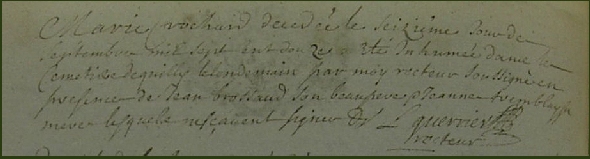 Marie rochard decedée le seizieme Jour de
Septembre mil sept cent douze a été Inhumée dans le
Cemetiere de quilly le lendemain par moy recteur soussigné en
presence de Jean brossaud son beaupere et Jeanne tremblay sa
mere lesquels ne scavent signer
recteur